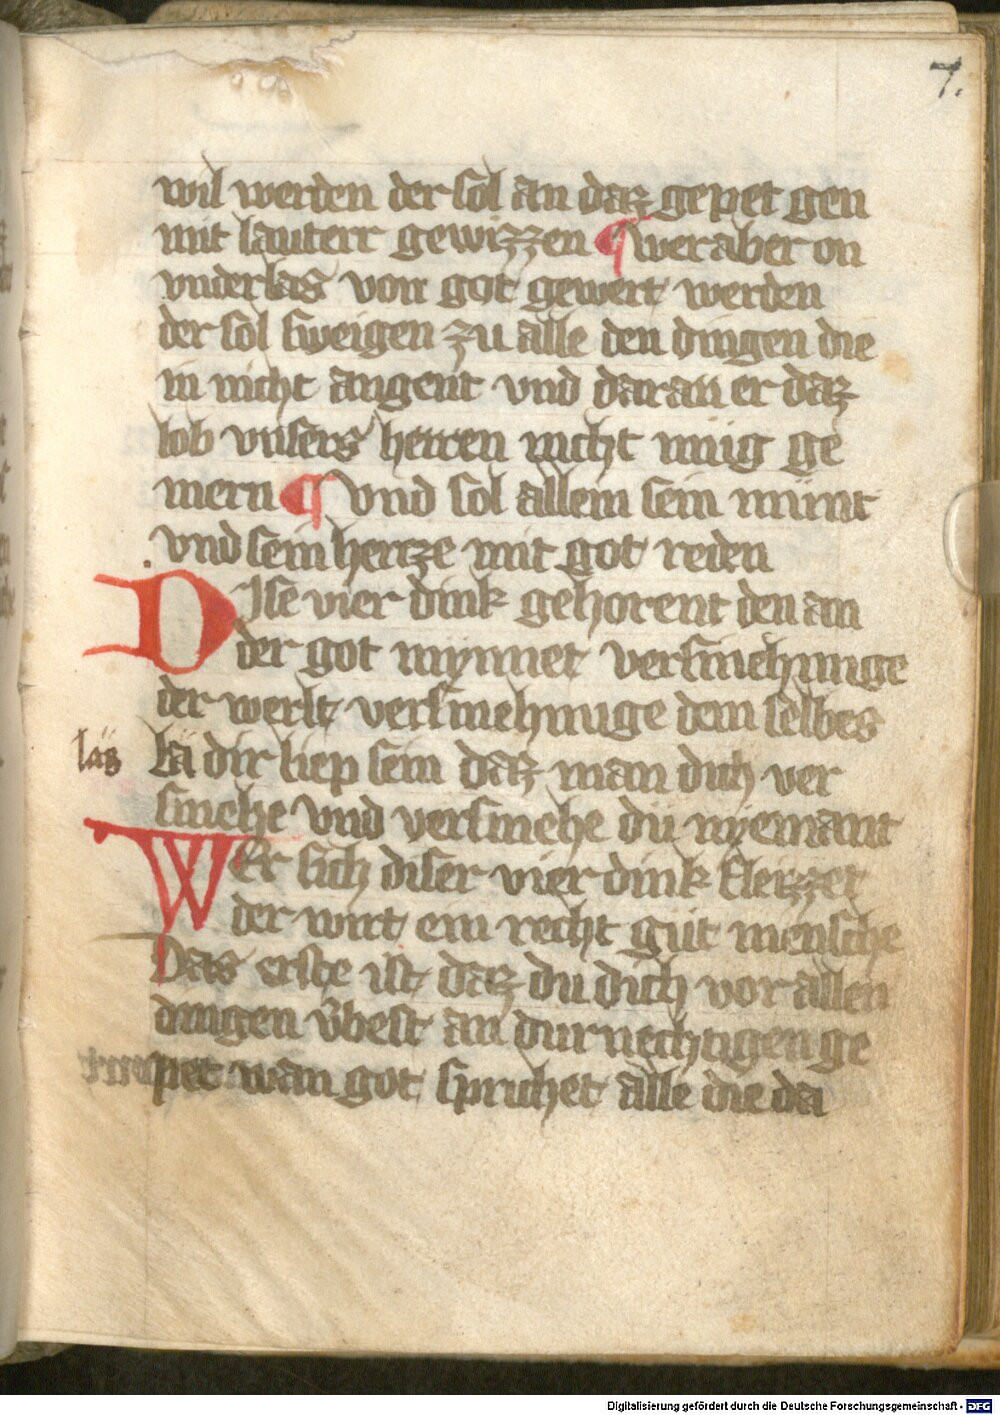 7.
wil werden der sol an daz gepet gen
mit lauterr gewizzen ¶ wer aber on
vnderlas von got gewert werden
der sol sweigen zu alle den dingen die
in nicht angent vnd daran er daz
lob vnsers herren nicht müg ge
mern ¶ vnd sol allein sein münt
vnd sein hertze mit got reden
DIse vier dink gehorent den an
der got mynnet versmehunge
der werlt versmehunge dein selbes
läz
Lä dir liep sein daz man dich ver
smehe vnd versmehe dü nyemant
WEr sich diser vier dink fleizzet
der wirt ein recht güt mensche
Das erste ist daz du dich vor allen
dingen vbest an durnechtigen ge
pet wan got sprichet alle die da
Digitalisierung gefördert durch die Deutsche Forschungsgemeinschaft - DFG